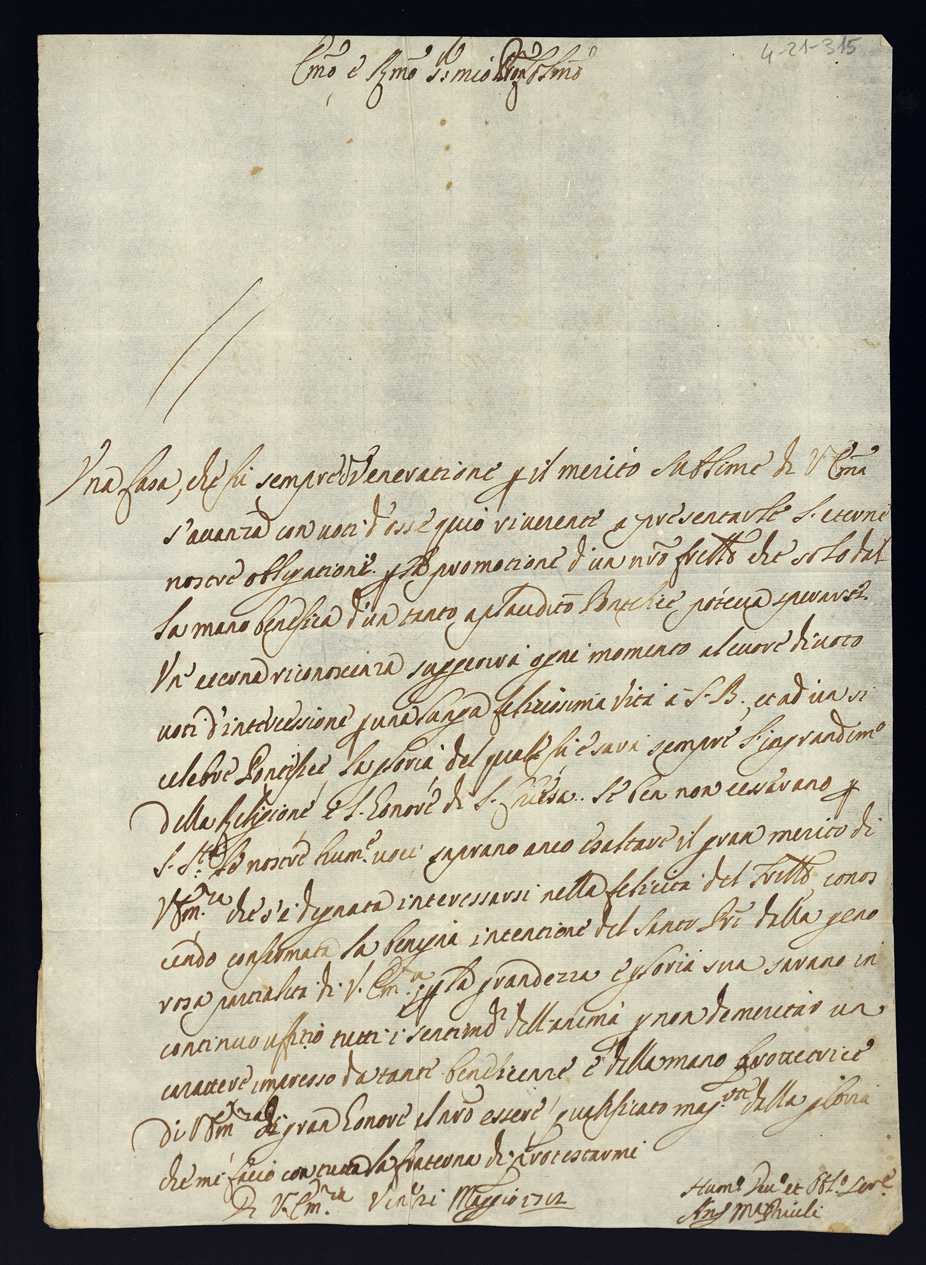 4-21-315
Em̃o è Rm̃o Sr mio
Una Casa, che fù sempre di Veneratione p il merito sublime di V Em̃a
s'avanza con voti d'ossequio riverente a presentarle l'eterne
nostre obligationi p la promotione d'un nr̃o frello che solo dal
la mano benefica d'un tanto aplaudito Pontefice poteva sperarsi.
Un eterna riconoscenza suggerirà ogni momento al cuore divoto
voti d'intercessione p una lunga felicissima vita à S. B., et ad un si
celebre Pontefice la gloria del quale fù e sarà sempre l'ingrandimo
della Religione, e l'honore di S. Chiesa. Se ben non cesserano p
S. Stà le nostre hume voci saprano anco esaltare il gran merito di
V Em.za che s'è degnata interessarsi nella felicità del Frello, conos
cendo confirmata la benigna intentione del Santo Prẽ dalla gene
rosa partialità di V. Em.za p la grandezza e gloria sua sarano in
continuo uffitio tutti i sentimti dell'anima p non demeritar un
carattere impresso da tante beneficenze è dalla mano Protettrice
di V Em.za gran honore el nrõ essere qualificato mag.te dalla gloria
che mi faccio con tutta la fraterna di protestarmi
Di V. Em.za Vin.a li Maggio 1712
Hum.o Dev.o et Obl.o Serre
Ang Ma Priuli